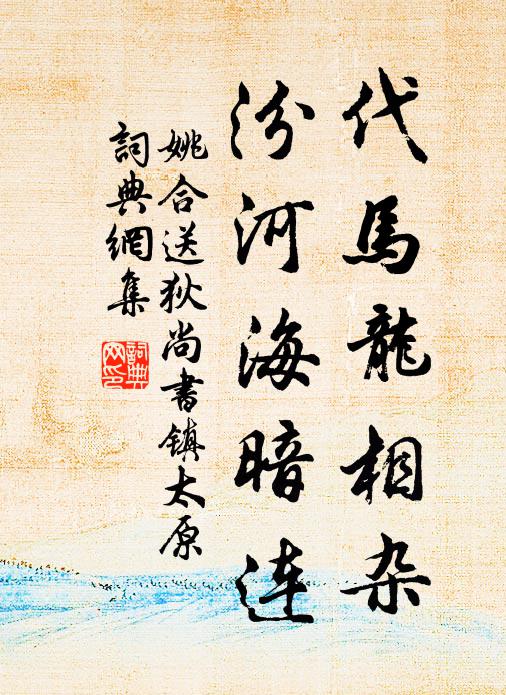 代馬龍相杂
汾河海暗連
姚合送狄尚書鎮太原
詞典網集
詞典網印